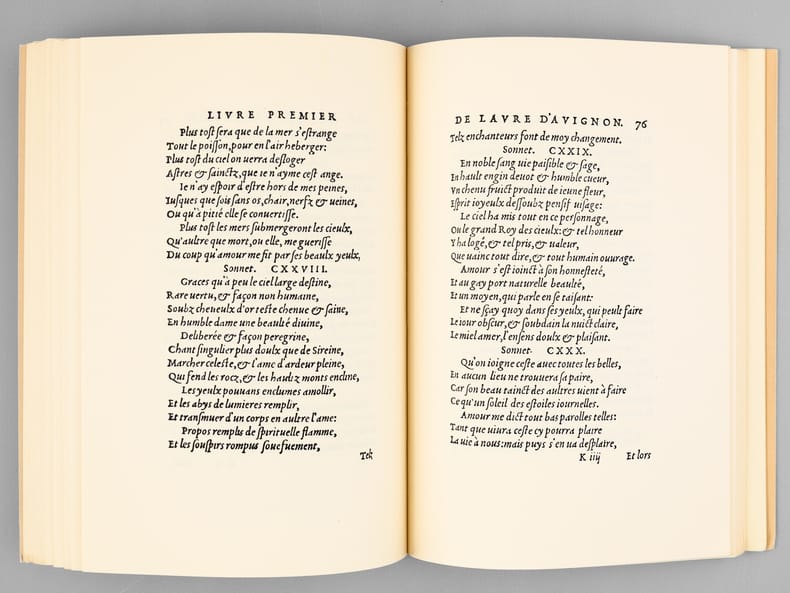 LIVRE PREMIER
Plus tost sera que de la mer s'estrange
Tout le poisson, pour en l'air heberger:
Plus tost du ciel on uerra desloger
Astres & sainctz, que ie n'ayme cest ange.
Ie n'ay espoir d'estre hors de mes peines,
Iusques que sois sans os, chair, nerfz & ueines,
Ou qu'à pitié elle se conuertisse.
Plus tost les mers submergeront les cieulx,
Qu'aultre que mort, ou elle, me guerisse
Du coup qu'amour me fit par ses beaulx yeulx,
Sonnet. CXXVIII.
Graces qu'à peu le ciel large destine,
Rare uertu, & façon non humaine,
Soubz cheueulx d'or teste chenue & saine,
En humble dame une beaulté diuine,
Deliberée & façon peregrine,
Chant singulier plus doulx que de Sireine,
Marcher celeste, & l'ame d'ardeur pleine,
Qui fend les rocz, & les haultz monts encline,
Les yeulx pouuans enclumes amollir,
Et les abys de lumieres remplir,
Et transmuer d'un corps en aultre l'ame:
Propos remplis de spirituelle flamme,
Et les souspirs rompus souefuement,
Telz
DE LAVRE D'AVIGNON. 76
Telz enchanteurs font de moy changement.
Sonnet. CXXIX.
En noble sang uie paisible & sage,
En hault engin deuot & humble cueur,
Vn chenu fruict produit de ieune fleur,
Esprit ioyeulx dessoubz pensif uisage:
Le ciel ha mis tout en ce personnage,
Ou le grand Roy des cieulx: & tel honneur
Y ha logé, & tel pris, & ualeur,
Que uainct tout dire, & tout humain ouurage.
Amour s'est ioinct à son honnesteté,
Et au gay port naturelle beaulté,
Et un moyen, qui parle en se taisant:
Et ne sçay quoy dans ses yeulx, qui peult faire
Le iour obscur, & soubdain la nuict claire,
Le miel amer, l'ensens doulx & plaisant.
Sonnet. CXXX.
Qu'on ioigne ceste auec toutes les belles,
En aucun lieu ne trouuera sa paire,
Car son beau tainct des aultres uient à faire
Ce qu'un soleil des estoiles iournelles.
Amour me dict tout bas parolles telles:
Tant que uiura ceste cy pourra plaire
La uie à nous: mais puys s'en ua desplaire,
K iiij Et lors